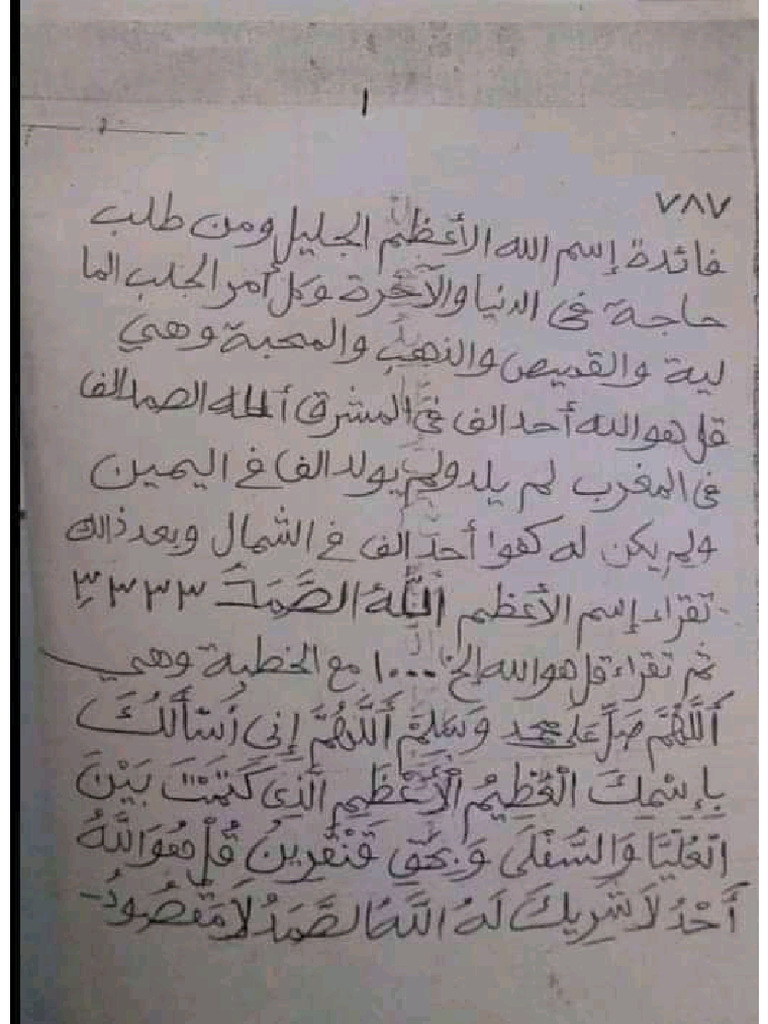 ١
٧٨٧
فائدة إسم الله الأعظم الجليل ومن طلب
حاجة فى الدنيا والآخرة وكل أمر الجلب الما
لية والقميص والذهب والمحبة وهي
قل هو الله أحد الف فى المشرق ألله الصمد الف
فى المغرب لم يلد ولم يولد الف فے اليمين
ولم يكن له كفوا أحد الف فے الشمال وبعد ذالك
تقراء إسم الأعظم اَللَّهُ الصَّمَدُ ٣٣٣٣
ثم تقراء قل هو الله إلخ ١٠٠٠ مع الخطبة وهي
أَللَّهُمَّ صَلِّ عَلَى محمد وَسَلِّمْ أَللَّهُمَّ إِنِى أَسْأَلُكَ
بِإِسْمِكَ الْعَظِيْمِ الْأَعْظَمِ الَّذِى كَتَمْتَ بَيْنَ
الْعُلْيَا وَالسُّفْلَى وَبِحَقِ قل هُوَ اللَّهُ
أَحَدٌ لَا شَرِيكَ لَهُ اللَّهُ الصَّمَدُ لَا مَقْصُودُ